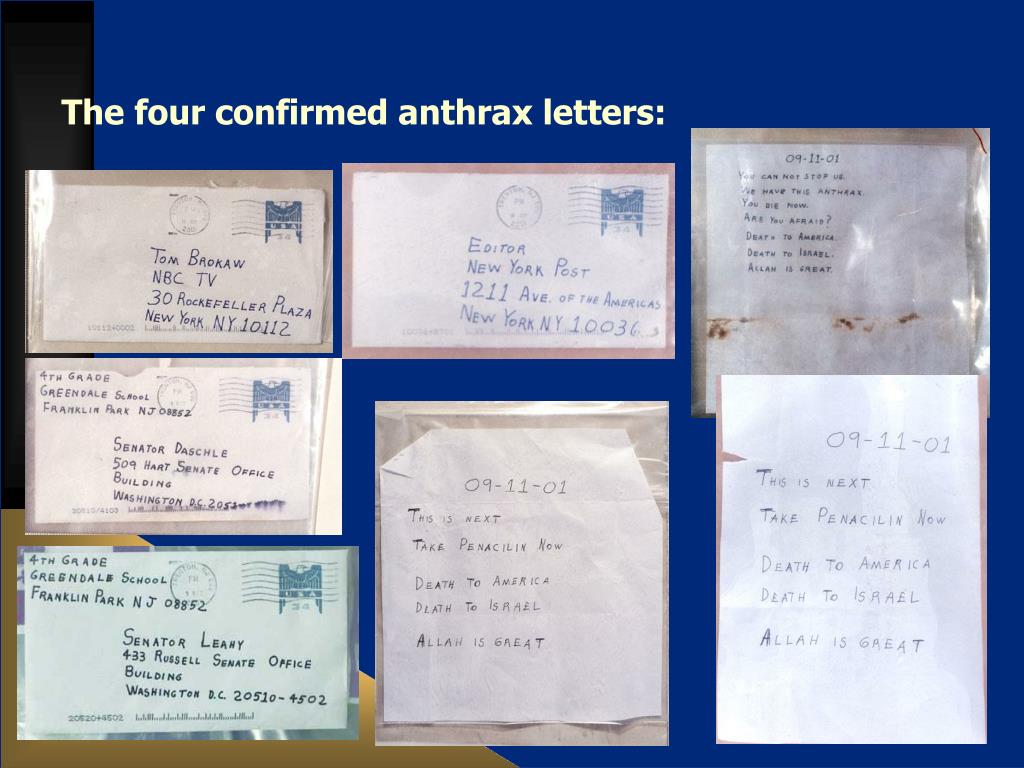 The four confirmed anthrax letters:
USA
34
TOM BROKAW
NBC TV
30 ROCKEFELLER PLAZA
NEW YORK NY 10112
USA
34
EDITOR
NEW YORK POST
1211 AVE. OF THE AMERICAS
NEW YORK NY 10036
09-11-01
YOU CAN NOT STOP US.
WE HAVE THIS ANTHRAX.
YOU DIE NOW.
ARE YOU AFRAID?
DEATH TO AMERICA.
DEATH TO ISRAEL.
ALLAH IS GREAT.
4TH GRADE
GREENDALE SCHOOL
FRANKLIN PARK NJ 08852
USA
34
SENATOR DASCHLE
509 HART SENATE OFFICE
BUILDING
WASHINGTON D.C. 
20510/4103
4TH GRADE
GREENDALE SCHOOL
FRANKLIN PARK NJ 08852
USA
34
SENATOR LEAHY
433 RUSSELL SENATE OFFICE
BUILDING
WASHINGTON D.C. 20510-4502
20520+4502
09-11-01
THIS IS NEXT
TAKE PENACILIN NOW
DEATH TO AMERICA
DEATH TO ISRAEL
ALLAH IS GREAT
09-11-01
THIS IS NEXT
TAKE PENACILIN NOW
DEATH TO AMERICA
DEATH TO ISRAEL
ALLAH IS GREAT